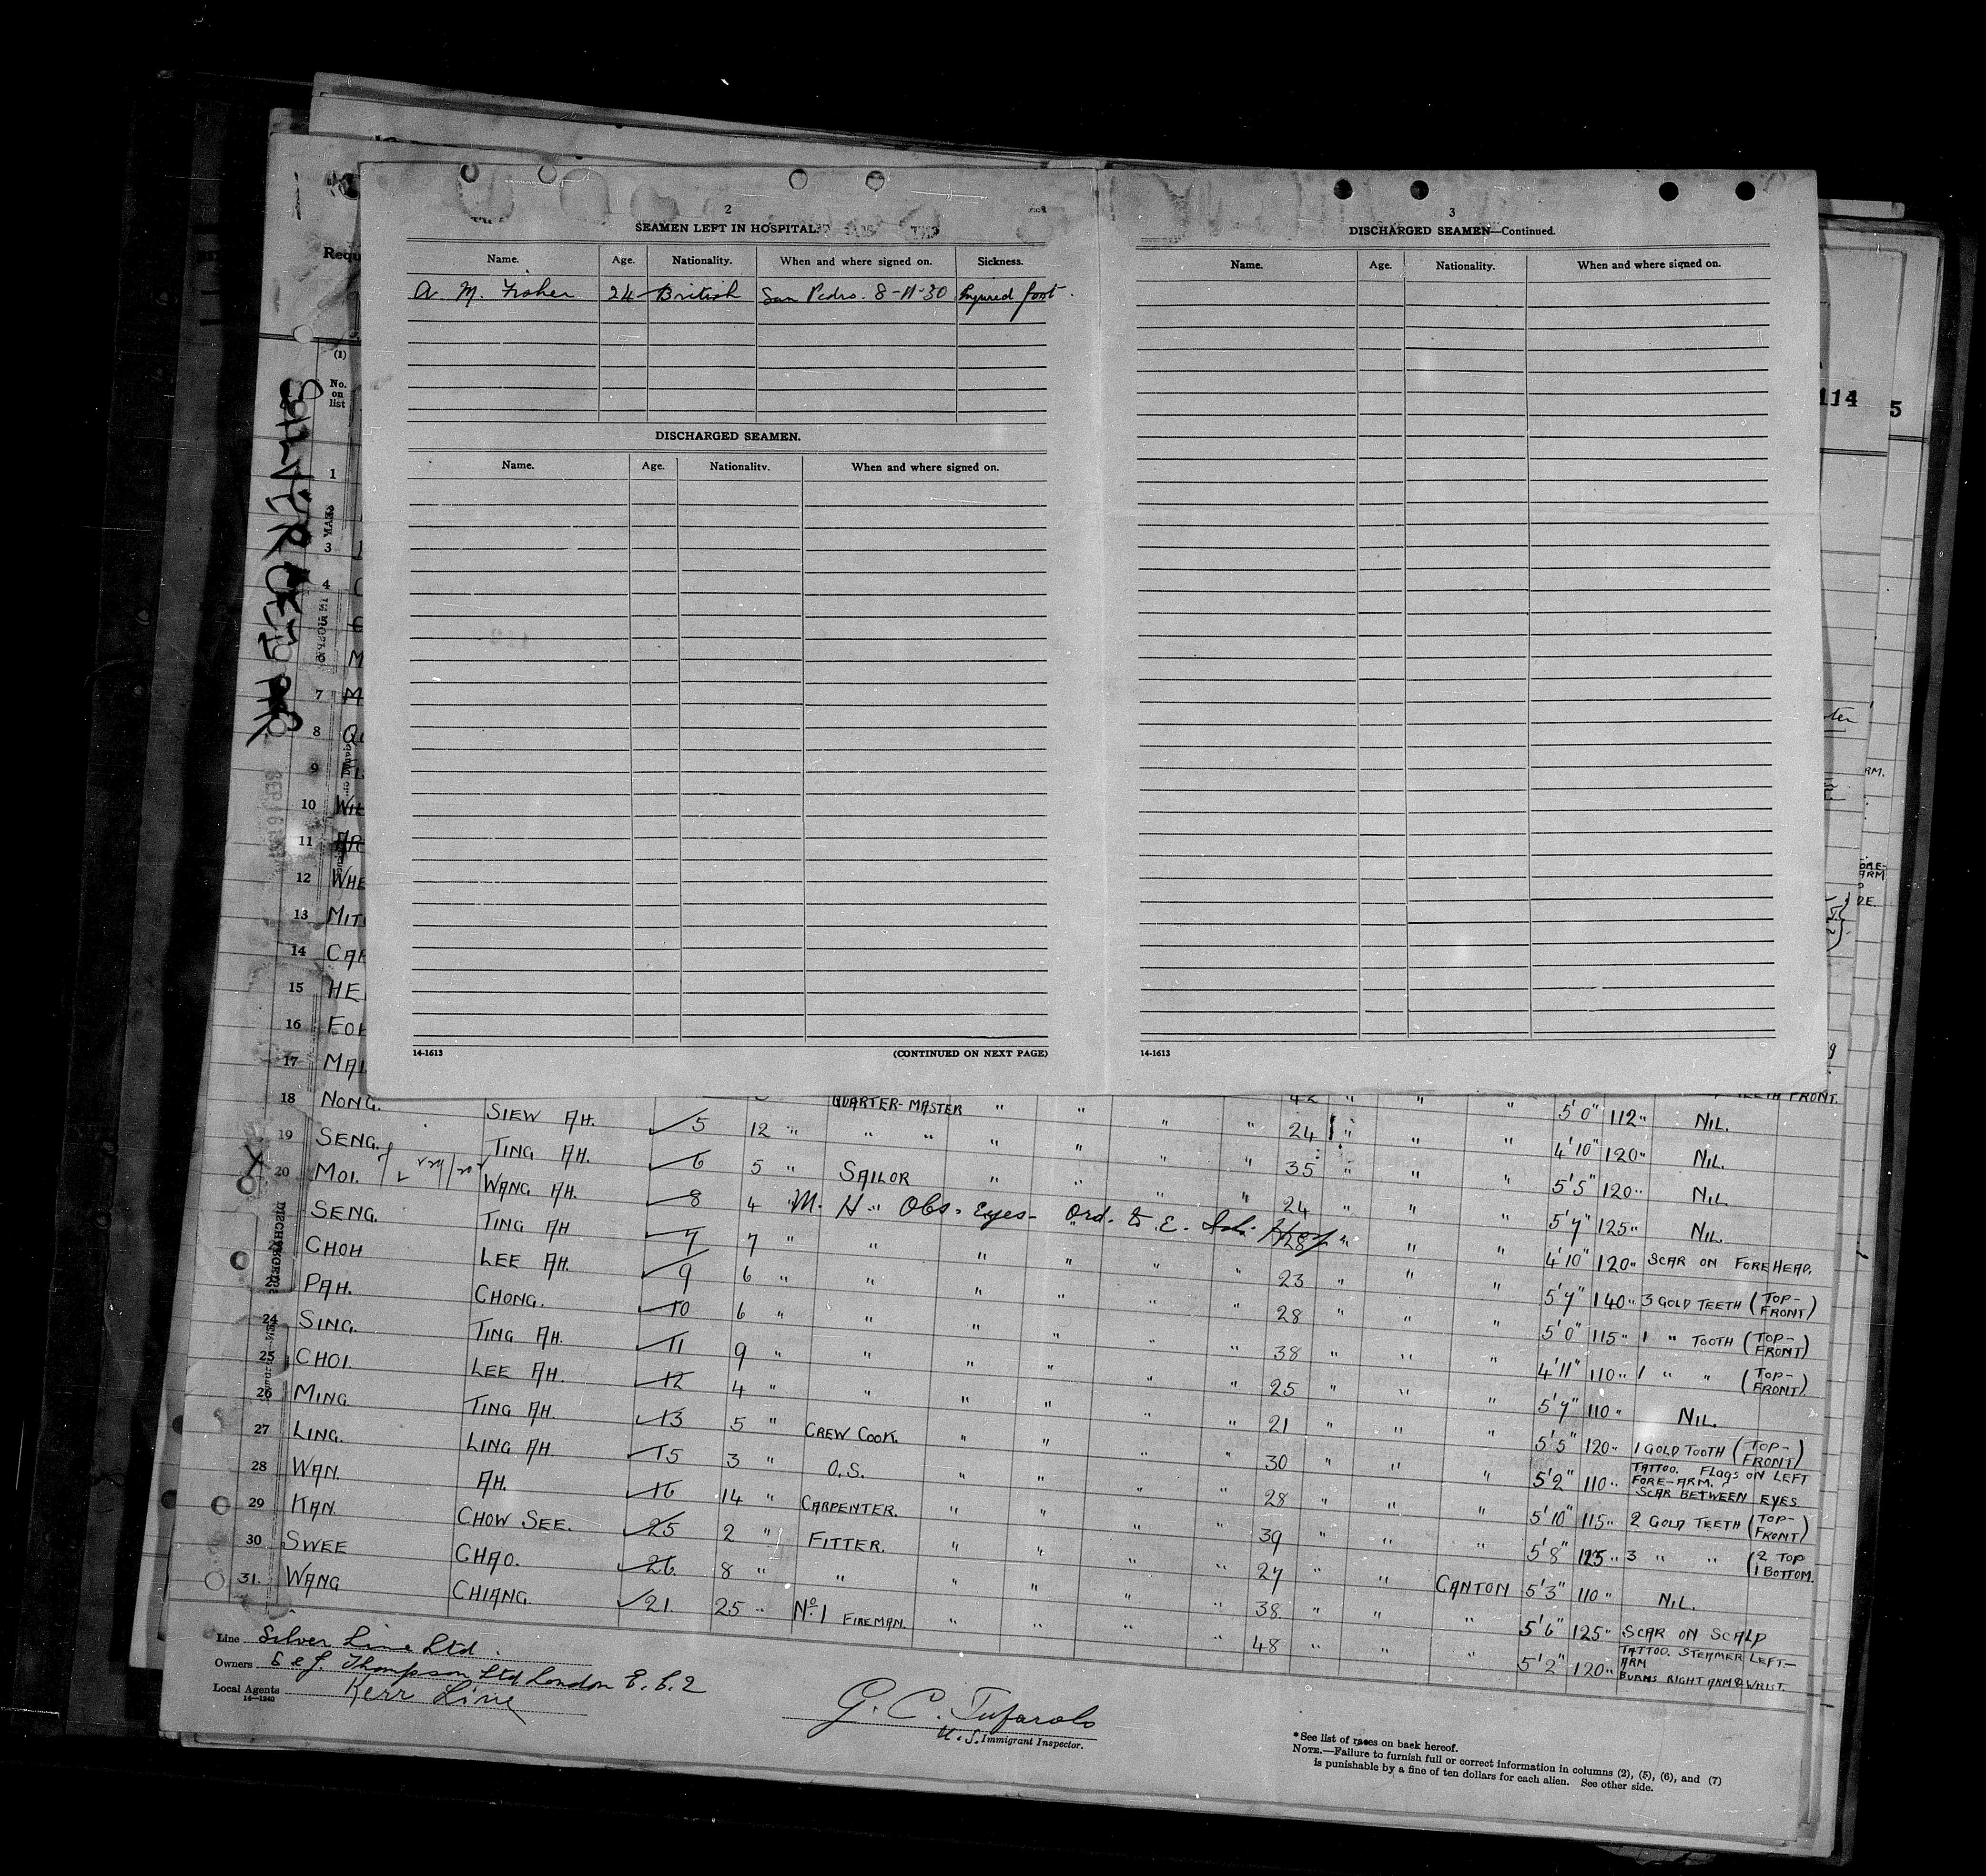 2
SEAMEN LEFT IN HOSPITAL.
Name. Age. Nationality. When and where signed on. Sickness.
A. M. Fisher 24 British San Pedro. 8-11-30 Injured foot.
DISCHARGED SEAMEN.
Name. Age. Nationality. When and where signed on.
14-1613 (CONTINUED ON NEXT PAGE)
3
DISCHARGED SEAMEN—Continued.
Name. Age. Nationality. When and where signed on.
14-1613
114
5
Requ
(1)
No. on list
1
3
4
7
8
9
10
11
12 WHE
13 MIT
14 CAR
15 HE
16
17 MAI
TEETH FRONT.
18 NONG. SIEW AH. 5 12 " QUARTER-MASTER " " " " 42 " " "
19 SENG. TING AH. 6 5 " " " " " " " 24 " " " 5'0" 112" NIL.
20 MOI. WANG AH. 8 4 " SAILOR " " " " 35 " " " 4'10" 120" NIL.
SENG. TING AH 7 7 " M. H. Obs. Eyes - Ord. to E. Isl. Hosp. 24 " " " 5'5" 120" NIL
CHOH LEE AH. 9 6 " " " " " " 28 " " " 5'7" 125" NIL.
PAH. CHONG. 10 6 " " " " " " 23 " " " 4'10" 120" SCAR ON FOREHEAD.
24 SING. TING AH. 11 9 " " " " " " 28 " " " 5'7" 140" 3 GOLD TEETH (TOP-FRONT)
25 CHOI. LEE AH. 12 4 " " " " " " 38 " " " 5'0" 115" 1 " TOOTH (TOP-FRONT)
26 MING TING AH. 13 5 " " " " " " 25 " " " 4'11" 110" 1 " " (TOP-FRONT)
27 LING. LING AH 15 3 " CREW COOK. " " " " 21 " " " 5'7" 110" NIL.
28 WAN. AH. 16 14 " O.S. " " " " 30 " " " 5'5" 120" 1 GOLD TOOTH (TOP-FRONT)
29 KAN. CHOW SEE. 25 2 " CARPENTER. " " " " 28 " " " 5'2" 110" TATTOO. FLAGS ON LEFT FORE-ARM. SCAR BETWEEN EYES
30 SWEE CHAO. 26 8 " FITTER. " " " " 39 " " " 5'10" 115" 2 GOLD TEETH (TOP-FRONT)
31. WANG CHIANG. 21. 25 " " " " " " 27 " " " 5'8" 125" 3 " " (2 TOP 1 BOTTOM.
No. 1 FIREMAN. " " " " 38 " " CANTON 5'3" 110" NIL.
48 " " " 5'6" 125" SCAR ON SCALP
5'2" 120" TATTOO. STEAMER LEFT-ARM BURNS RIGHT ARM & WRIST.
DISCHARGED
Line Silver Line Ltd.
Owners S & J. Thompson Ltd London E.C.2
Local Agents Kerr Line
14—1240
G. C. Tufarolo
U.S. Immigrant Inspector.
*See list of races on back hereof.
NOTE.—Failure to furnish full or correct information in columns (2), (5), (6), and (7)
is punishable by a fine of ten dollars for each alien. See other side.